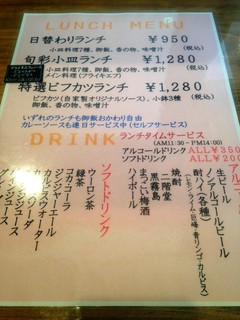 LUNCH MENU
日替わりランチ ￥950
小皿料理7種、御飯、香の物、味噌汁 (税込)
旬彩小皿ランチ ￥1,280
小皿料理7種、御飯、香の物、味噌汁 (税込)
メイン料理(フライキエフ)
特選ビフカツランチ ￥1,280
ビフカツ(自家製オリジナルソース)、小鉢3種 (税込)
御飯、香の物、味噌汁
いずれのランチも御飯おかわり自由
カレーソースも連日サービス中(セルフサービス)
DRINK
ランチタイムサービス
(AM11:30 ~ PM14:00)
アルコールドリンク ALL￥350
ソフトドリンク ALL￥200
生ビール
ノンアルコールビール
酎ハイ(各種)
(レモン・ライム・巨峰・青リンゴ・カルピス)
焼酎
二階堂
黒霧島
まっこい梅酒
ハイボール
ソフトドリンク
ウーロン茶
緑茶
コカコーラ
カルピスウォーター
カルピスソーダ